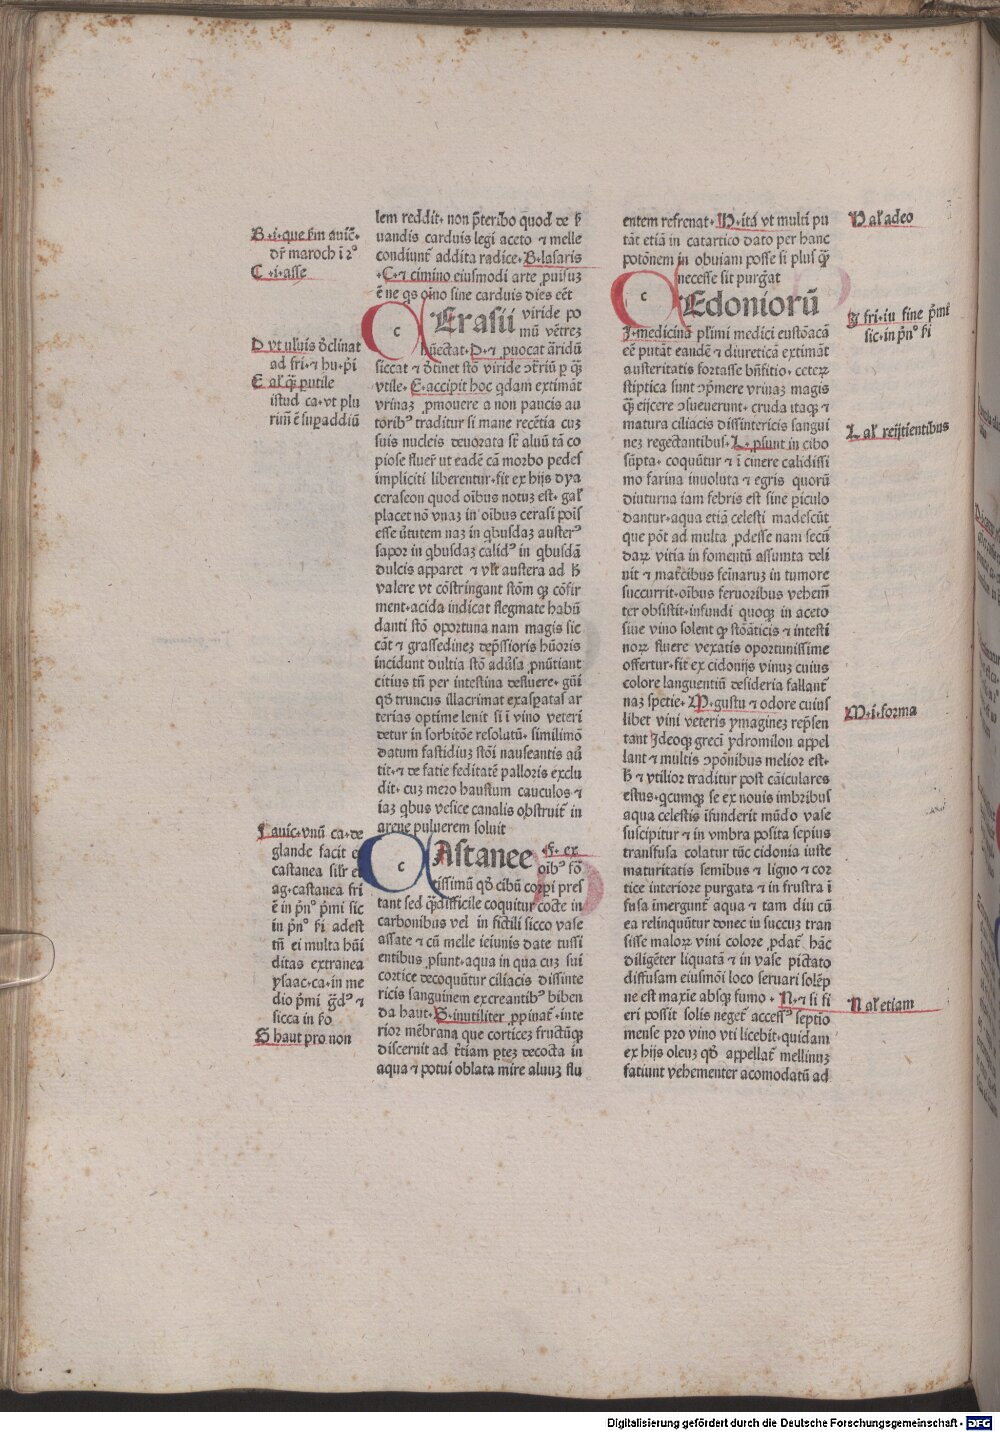 B·i·que ẜm auic̄·
dr̄ maroch ī 2°
C·i·asse
D vt uluis ꝺclinat
ad fri·⁊ hu·p̄i
E al' ꝙ̄ ꝑutile
istud ca·vt plu
rim̄ ē suꝑaddiū
F auic·vnū ca·de
glande facit e
castanea silr̄ et
ag·castanea fri
ē in pn̄° p̄mi sic
in pn̄° ẜi adest
tn̄ ei multa hūi
ditas extranea
ysaac·ca·in me
dio p̄mi gd̄° ⁊
sicca in ẜo
G haut pro non
lem reddit· non p̄teribo quod de ẜ
uandis carduis legi aceto ⁊ melle
condiunt̄ addita radice·B·lasaris
·C·⁊ cimino eiusmodi arte ꝓuisuꝫ
ē ne qs oīno sine carduis dies eēt
CErasii viride po
mū vētreꝫ
hūectat·D·⁊ ꝓuocat āridū
siccat ⁊ ꝺtinet stō viride ꝯt̄riū ꝑ ꝙ̄
vtile·E·accipit hoc qdam extimāt
vrinaꝫ ꝓmouere a non paucis au
torib⁹ traditur si mane recētia cuꝫ
suis nucleis deuorata st̄ aluū tā co
piose fluer̄ ut eadē cā morbo pedeſ
impliciti liberentur·fit ex hijs dya
ceraseon quod oībus notuꝫ est· gal'
placet nō vnaꝫ in oībus cerasi poīs
esse v̄tutem naꝫ in qbusdaꝫ auster⁹
sapor in qbusdaꝫ calid⁹ in qbusdā
dulcis apparet ⁊ vl't austera ad ẜ
valere vt cōstringant stōm qꝫ cōfir
ment·acida indicat flegmate habū
danti stō oportuna nam magis sic
cāt ⁊ grassedineꝫ dep̄ssioris hūoris
incidunt dultia stō adūsa ꝓnūtiant
citius tn̄ per intestina defluere· gūi
qd̄ truncus illacrimat exasꝑatas ar
terias optime lenit si ī vino veteri
detur in sorbitōe resolutū· similimō
datum fastidiuꝫ stōi nauseantis aū
tit·⁊ de fatie feditatē palloris exclu
dit· cuꝫ mero haustum cauculos ⁊
iaꝫ qbus vesice canalis obstruit̄ in
arene puluerem soluit
CAstanee ·F· ex
oīb⁹ fō
tissimū qd̄ cibū corpi pres
tant sed qd̄ifficile coquitur cocte in
carbonibus vel in fictili sicco vase
assate ⁊ cū melle ieiunis date tussi
entibus ꝓsunt·aqua in qua cuꝫ sui
cortice decoquūtur ciliacis dissinte
ricis sanguinem excreantib⁹ biben
da haut·G·inutiliter ꝓpinat̄·inte
rior mēbrana que corticeꝫ fructūqꝫ
discernit ad t̄tiam ꝑteꝫ decocta in
aqua ⁊ potui oblata mire aluuꝫ flu
entem refrenat·H·itā vt multi pu
tāt etiā in catartico dato per hanc
potōnem in obuiam posse si plus ꝙ̄
necesse sit purgat
CEdoniorū
I·medicinā pl'imi medici eustōacā
eē putāt eandē ⁊ diureticā extimāt
austeritatis fortasse bn̄fitio·ceterꝝ
stiptica sunt ꝯp̄mere vrinaꝫ magis
ꝙ̄ eijcere ꝯsueuerunt·cruda itaqꝫ ⁊
matura ciliacis dissintericis sangui
neꝫ regectantibus·L·ꝓsunt in cibo
sūpta·coquūtur ⁊ ī cinere calidissi
mo farina inuoluta ⁊ egris quorū
diuturna iam febris est sine ꝑiculo
dantur·aqua etiā celesti madescūt
que pōt ad multa ꝓdesse nam secū
darꝝ vitia in fomentū assumta deli
nit ⁊ matcibus feīaruꝫ in tumore
succurrit·oībus feruoribus vehem̄
ter obsistit·infundi quoqꝫ in aceto
siue vino solent qꝫ stōāticis ⁊ intesti
norꝝ fluere vexatis oportunissime
offertur·fit ex cidonijs vinuꝫ cuius
colore languentiū desideria fallant̄
naꝫ spetie·M·gustu ⁊ odore cuius
libet vini veteris ymagineꝫ rep̄sen
tant Ideoqꝫ greci ydromilon appel
lant ⁊ multis ꝯpōnibus melior est·
ẜ ⁊ vtilior traditur post cāiculares
estus·qcumqꝫ se ex nouis imbribus
aqua celestis īfunderit mūdo vase
suscipitur ⁊ in vmbra posita sepius
transfusa colatur tūc cidonia iuste
maturitatis semībus ⁊ ligno ⁊ cor
tice interiore purgata ⁊ in frustra ī
fusa īmergunt̄ aqua ⁊ tam diu cū
ea relinquūtur donec in succuꝫ tran
sisse malorꝝ vini colore ꝓdat̄ hāc
diligēter liquatā ⁊ in vase pictato
diffusam eiusmōi loco seruari solēp
ne est maxīe absqꝫ fumo·N·⁊ si fi
eri possit solis neget̄ access⁹ septīo
mense pro vino vti licebit·quidam
ex hijs oleuꝫ qd̄ appellat̄ mellinuꝫ
fatiunt vehementer acomodatū ad
H al' adeo
I fri·iu fine p̄mi
sic·in pn̄° ẜi
L al' reijtientibus
M·i·forma
N al' etiam
Digitalisierung gefördert durch die Deutsche Forschungsgemeinschaft - DFG